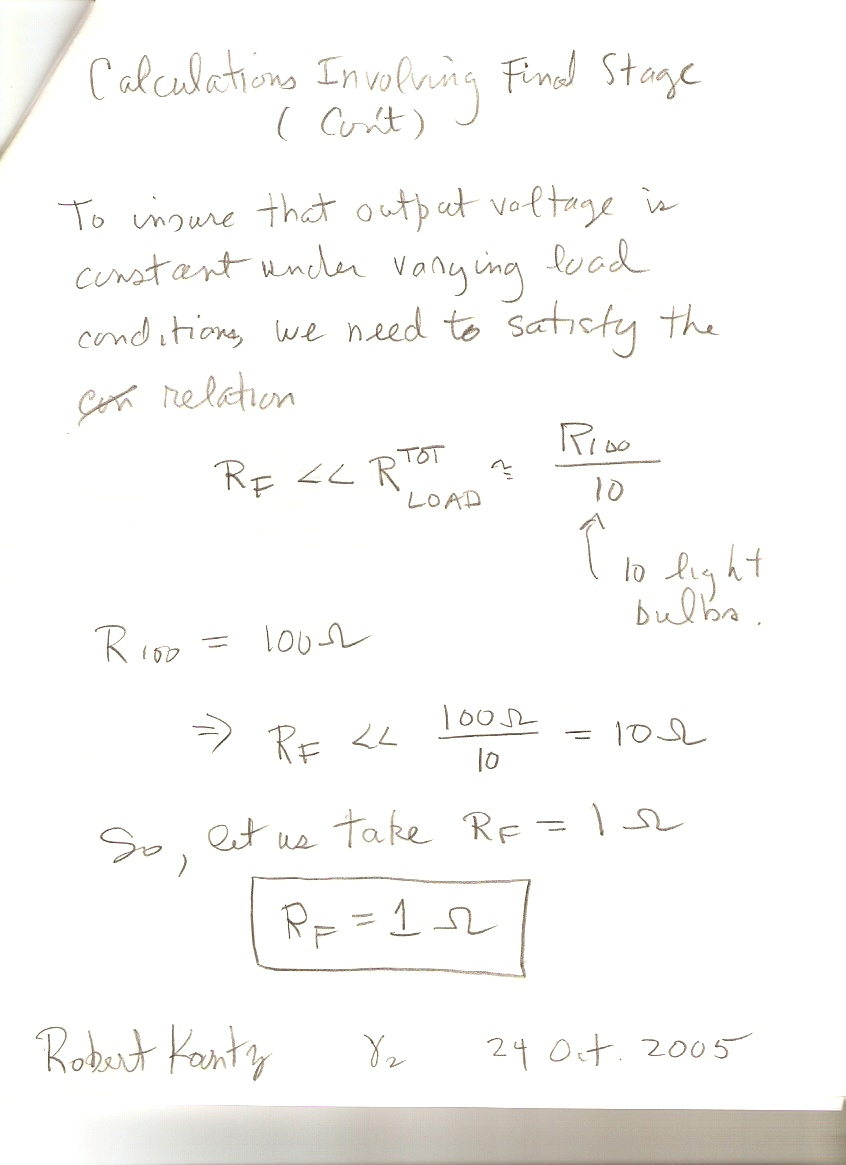 Calculations Involving Final Stage
( Con't )
To insure that output voltage is
constant under varying load
conditions, we need to satisfy the
con relation
R_F << R^TOT_LOAD ≅ R_100 / 10
↑ 10 light
bulbs.
R_100 = 100 Ω
⇒ R_F << 100 Ω / 10 = 10 Ω
So, let us take R_F = 1 Ω
R_F = 1 Ω
Robert Kantz γ_2 24 Oct. 2005